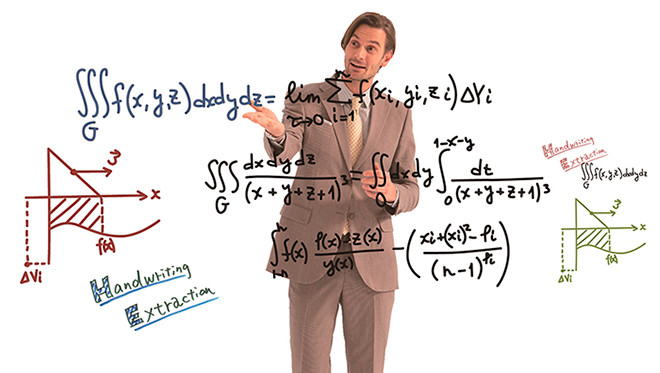 ∭_G f(x,y,z)dxdydz = lim_{τ→0} ∑_{i=1}^{n} f(xi, yi, zi)ΔVi
∭_G dxdydz/(x+y+z+1)^3 = ∬_D dxdy ∫_0^{1-x-y} dt/(x+y+z+1)^3
x
f(x)
ΔVi
Handwriting
Extraction
Handwriting
Extraction
∭_G f(x,y,z)dxdydz
x
f(x)
ΔVi